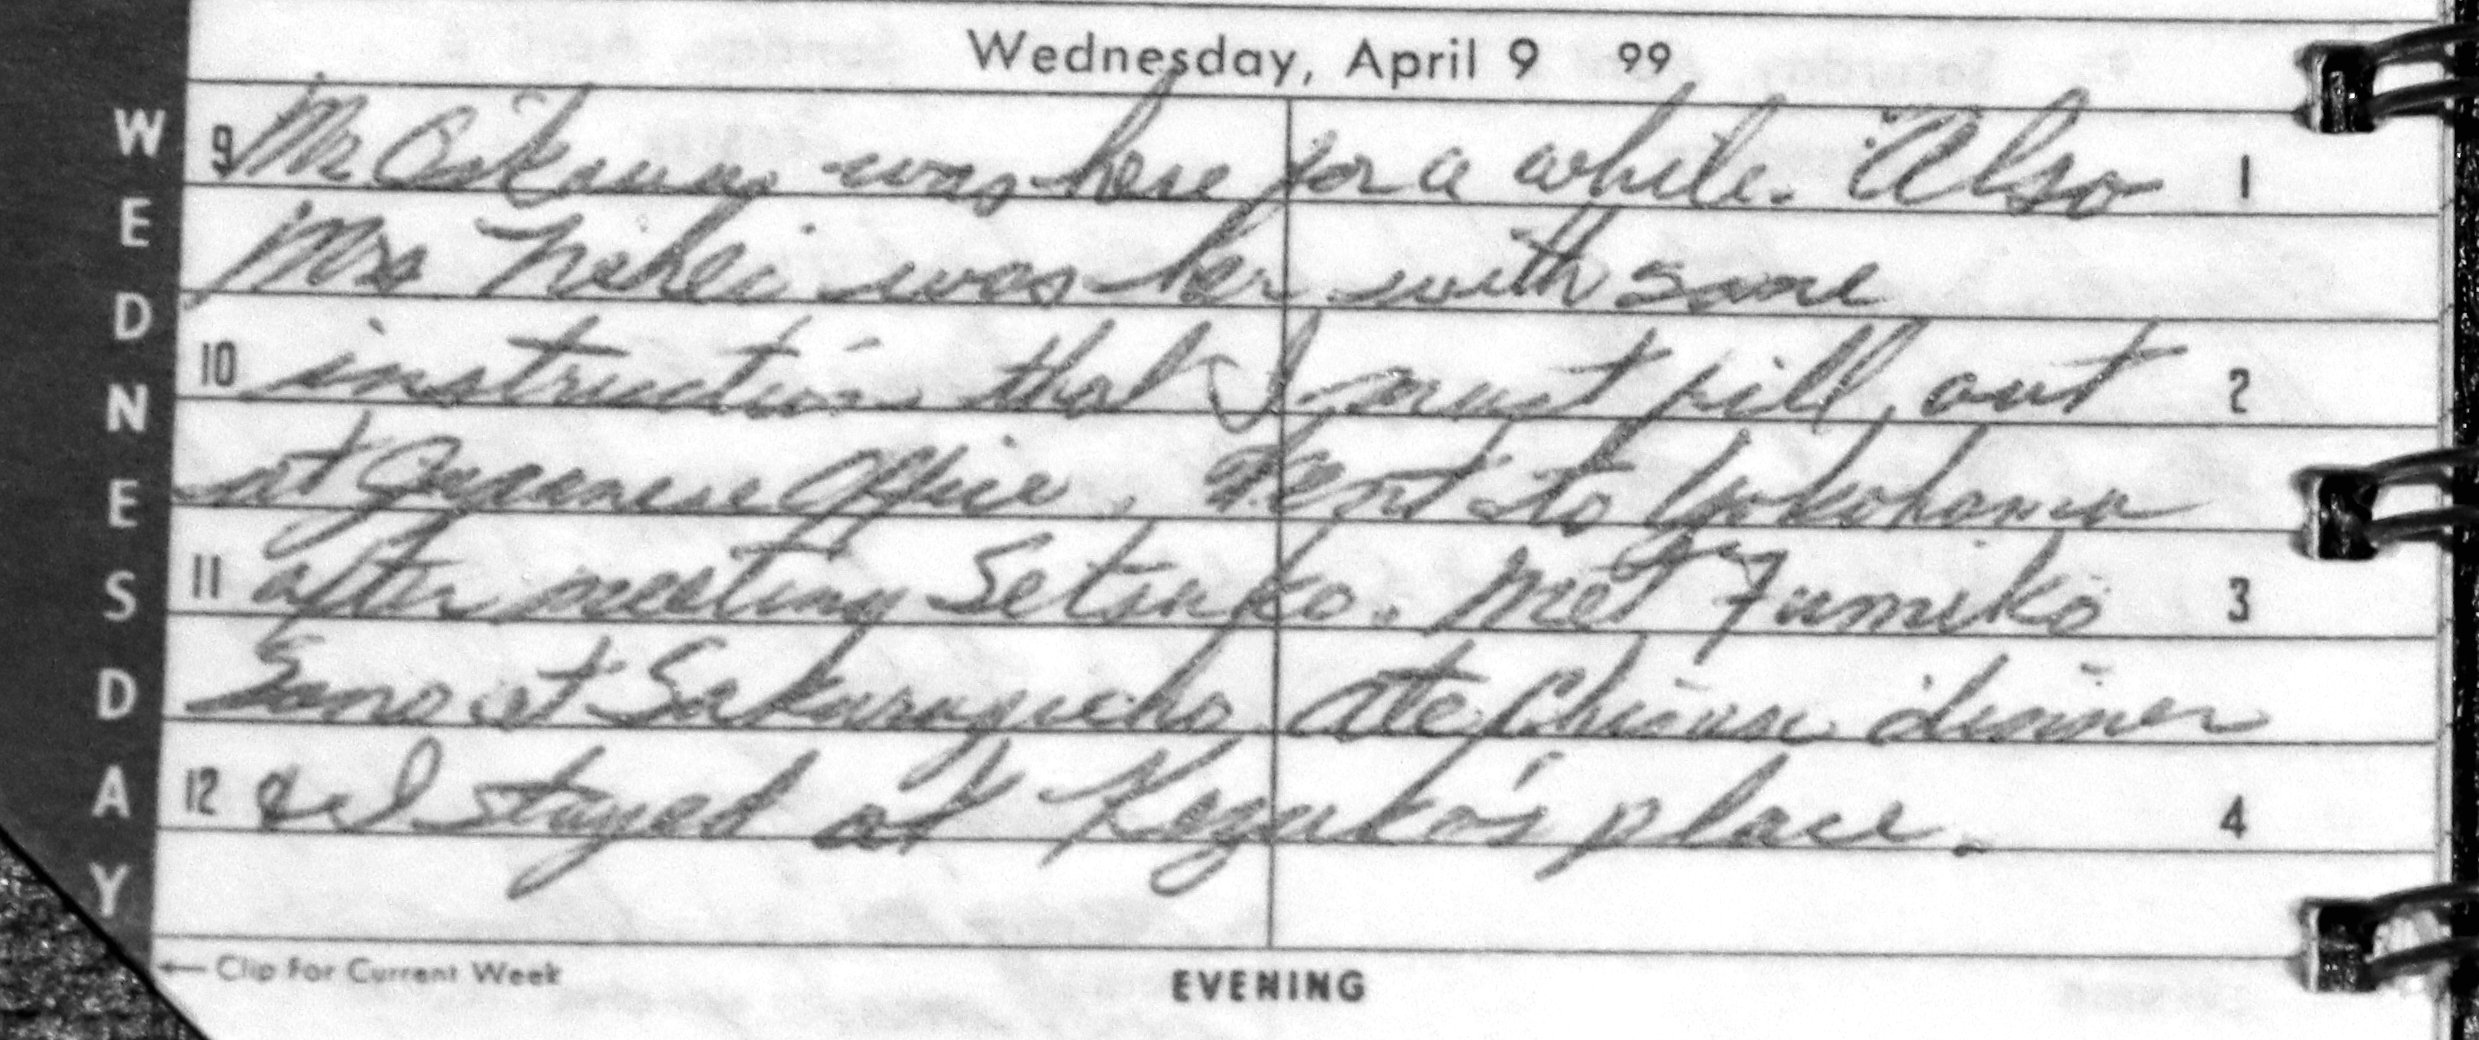 Wednesday, April 9 99
WEDNESDAY
9 Mr. was here for a while. Also 1
Mrs Nihei was her with some
10 instruction that I must fill out 2
at Japanese Office. Went to Yokohama
11 after meeting Setsuko. Met Fumiko 3
Sano at Sakuragicho ate Chinese dinner
12 & I stayed at place. 4
← Clip For Current Week
EVENING